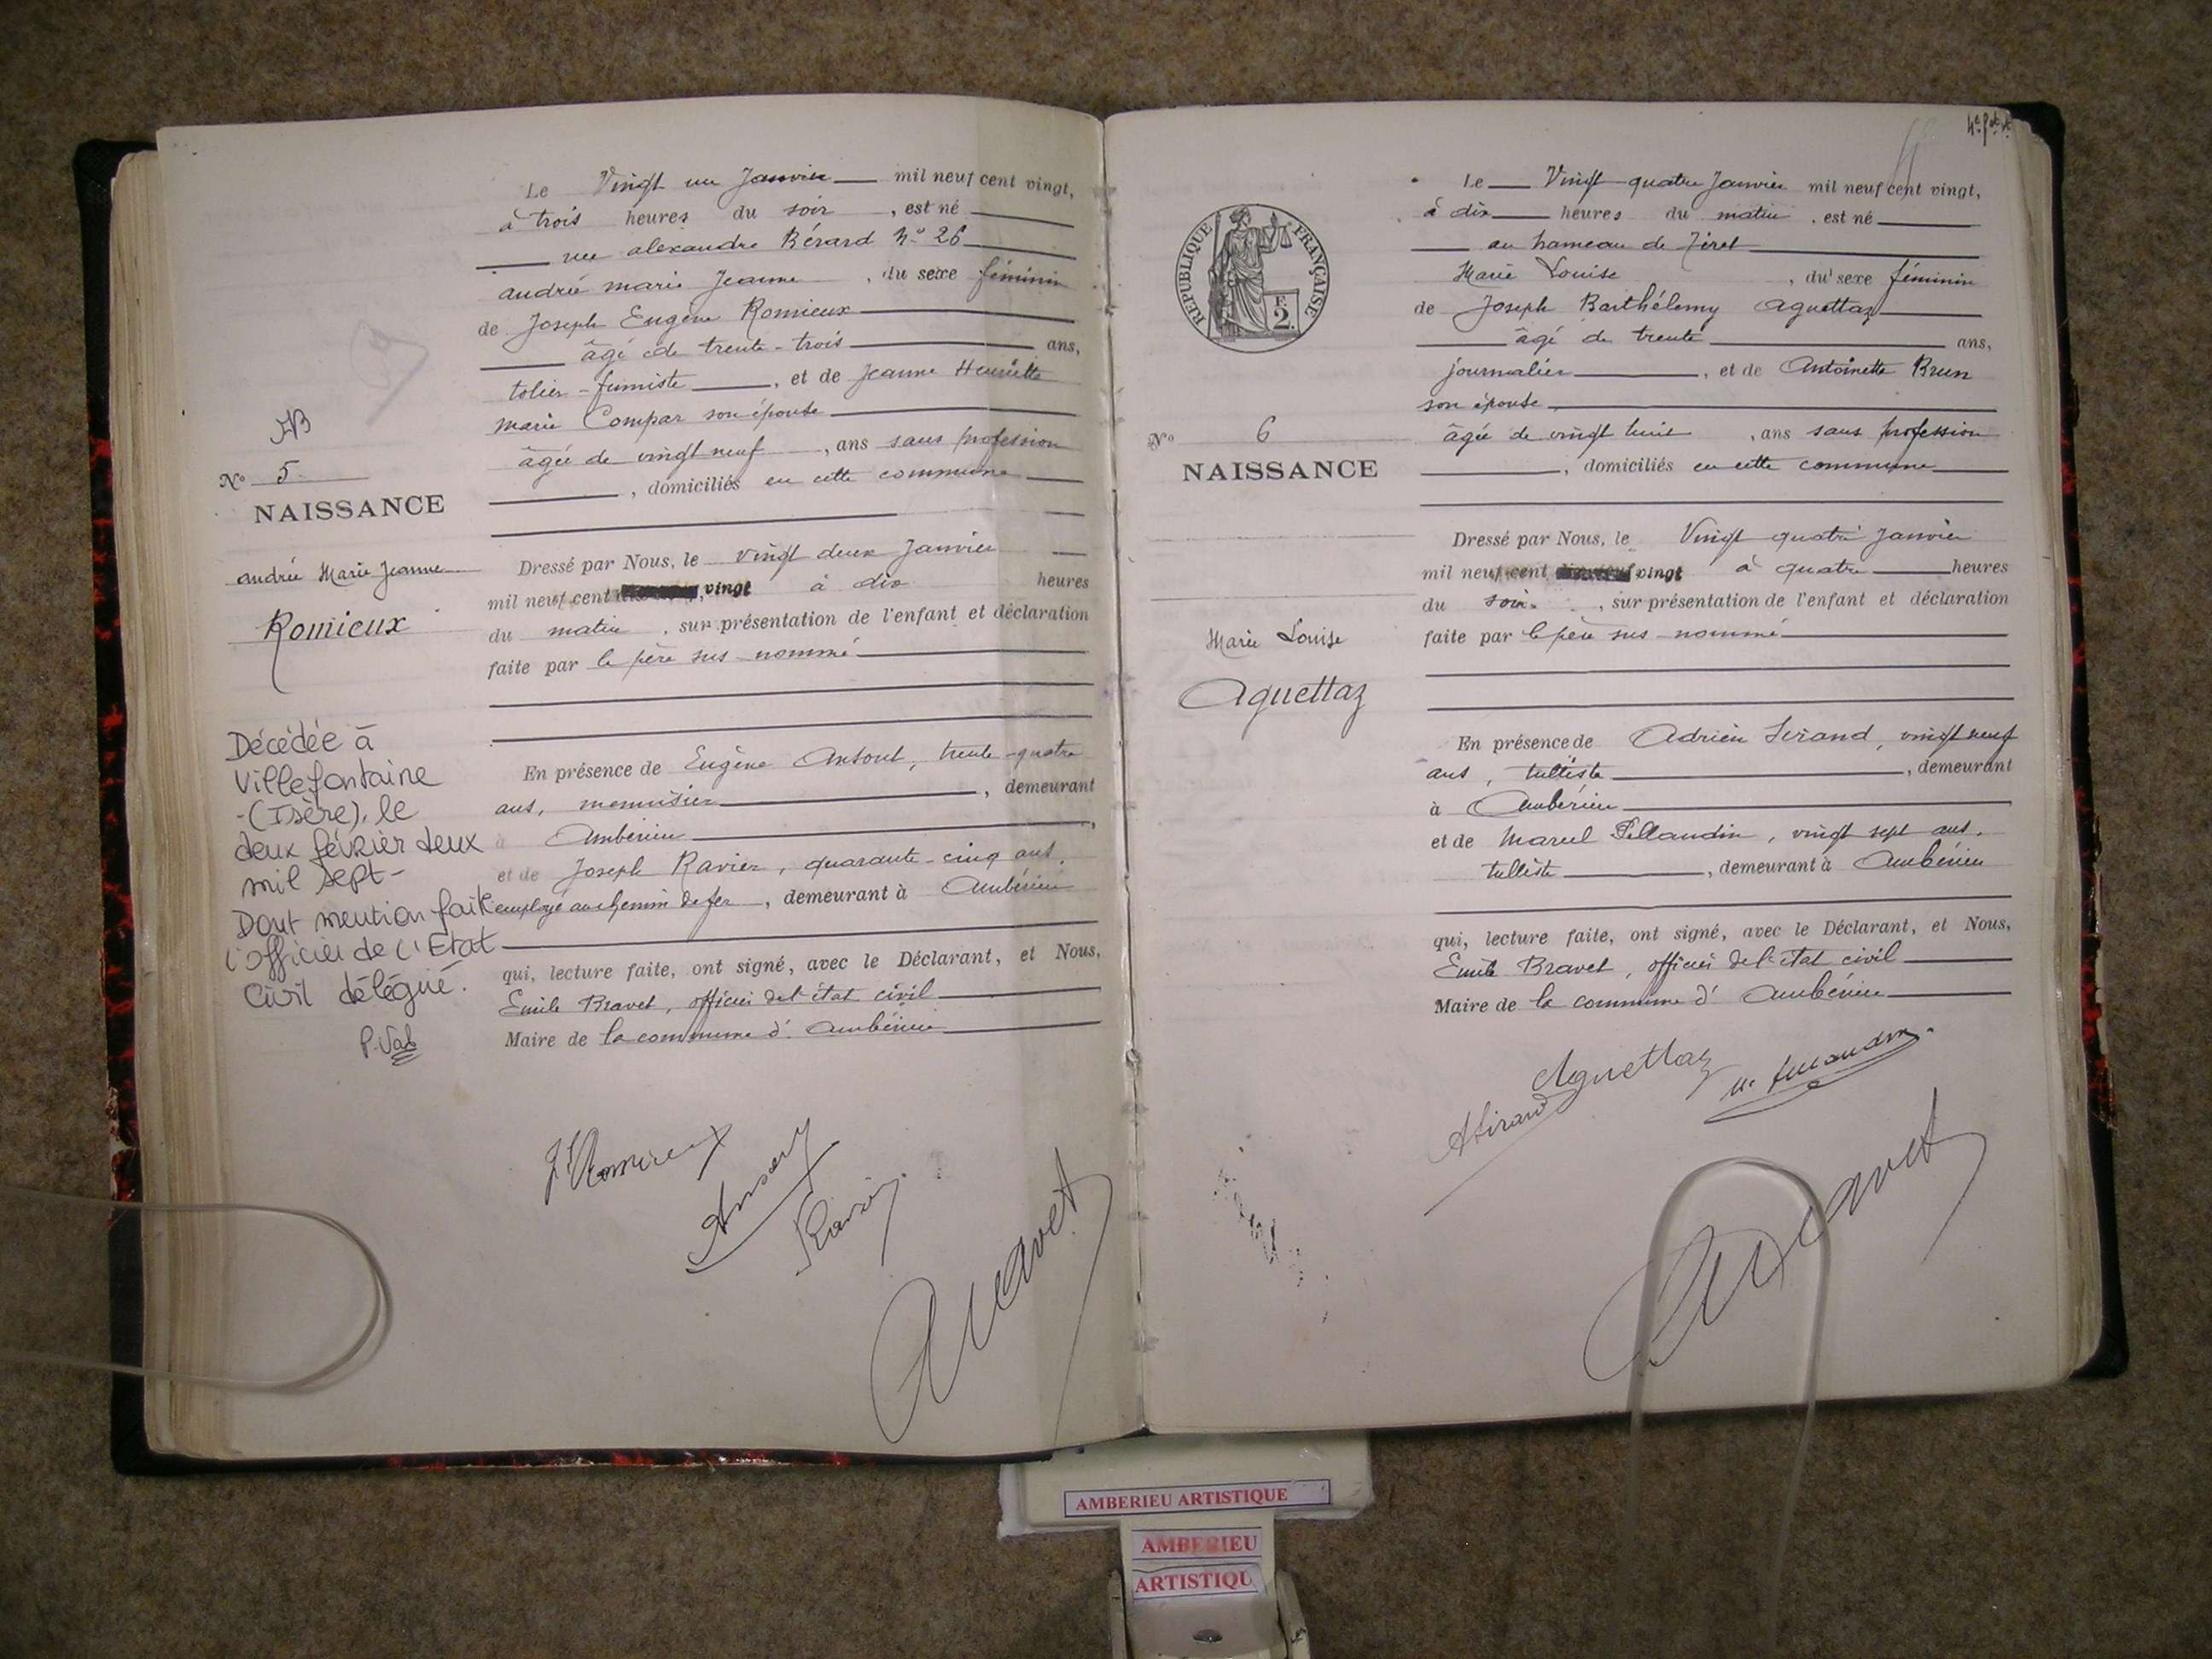 Le Vingt un Janvier mil neuf cent vingt,
à trois heures du soir, est né
rue alexandre Bérard N° 26
andrée marie Jeanne, du sexe féminin
de Joseph Eugène Romieux
âgé de trente-trois ans,
tolier-fumiste, et de Jeanne Henriette
marie Compar son épouse
âgée de vingt neuf, ans sans profession
, domiciliés en cette commune
Dressé par Nous, le vingt deux Janvier
mil neuf cent vingt à dix heures
du matin, sur présentation de l'enfant et déclaration
faite par le père sus-nommé
En présence de Eugène, trente-quatre
ans, menuisier, demeurant
à Ambérieu
et de Joseph Ravier, quarante-cinq ans,
employé au chemin de fer, demeurant à Ambérieu
qui, lecture faite, ont signé, avec le Déclarant, et Nous,
Emile Bravet, officier de l'état civil
Maire de la commune d'Ambérieu
N° 5
NAISSANCE
andrée Marie Jeanne
Romieux
Décédée à
Villefontaine
-(Isère), le
deux février deux
mil sept-
Dont mention faite
l'officier de l'Etat
Civil délégué.
J Romieux
Ravier
Bravet
4e
REPUBLIQUE FRANÇAISE
F. 2.
Le Vingt quatre Janvier mil neuf cent vingt,
à dix heures du matin, est né
au hameau de
Marie Louise, du sexe féminin
de Joseph Barthélemy Aguettaz
âgé de trente ans,
journalier, et de Antoinette Brun
son épouse
âgée de vingt huit, ans sans profession
, domiciliés en cette commune
Dressé par Nous, le Vingt quatre Janvier
mil neuf cent vingt à quatre heures
du soir, sur présentation de l'enfant et déclaration
faite par le père sus-nommé
En présence de Adrien, vingt neuf
ans, tulliste, demeurant
à Ambérieu
et de Marcel, vingt sept ans,
tulliste, demeurant à Ambérieu
qui, lecture faite, ont signé, avec le Déclarant, et Nous,
Emile Bravet, officier de l'état civil
Maire de la commune d'Ambérieu
N° 6
NAISSANCE
Marie Louise
Aguettaz
Aguettaz
Bravet
AMBERIEU ARTISTIQUE
AMBERIEU
ARTISTIQU